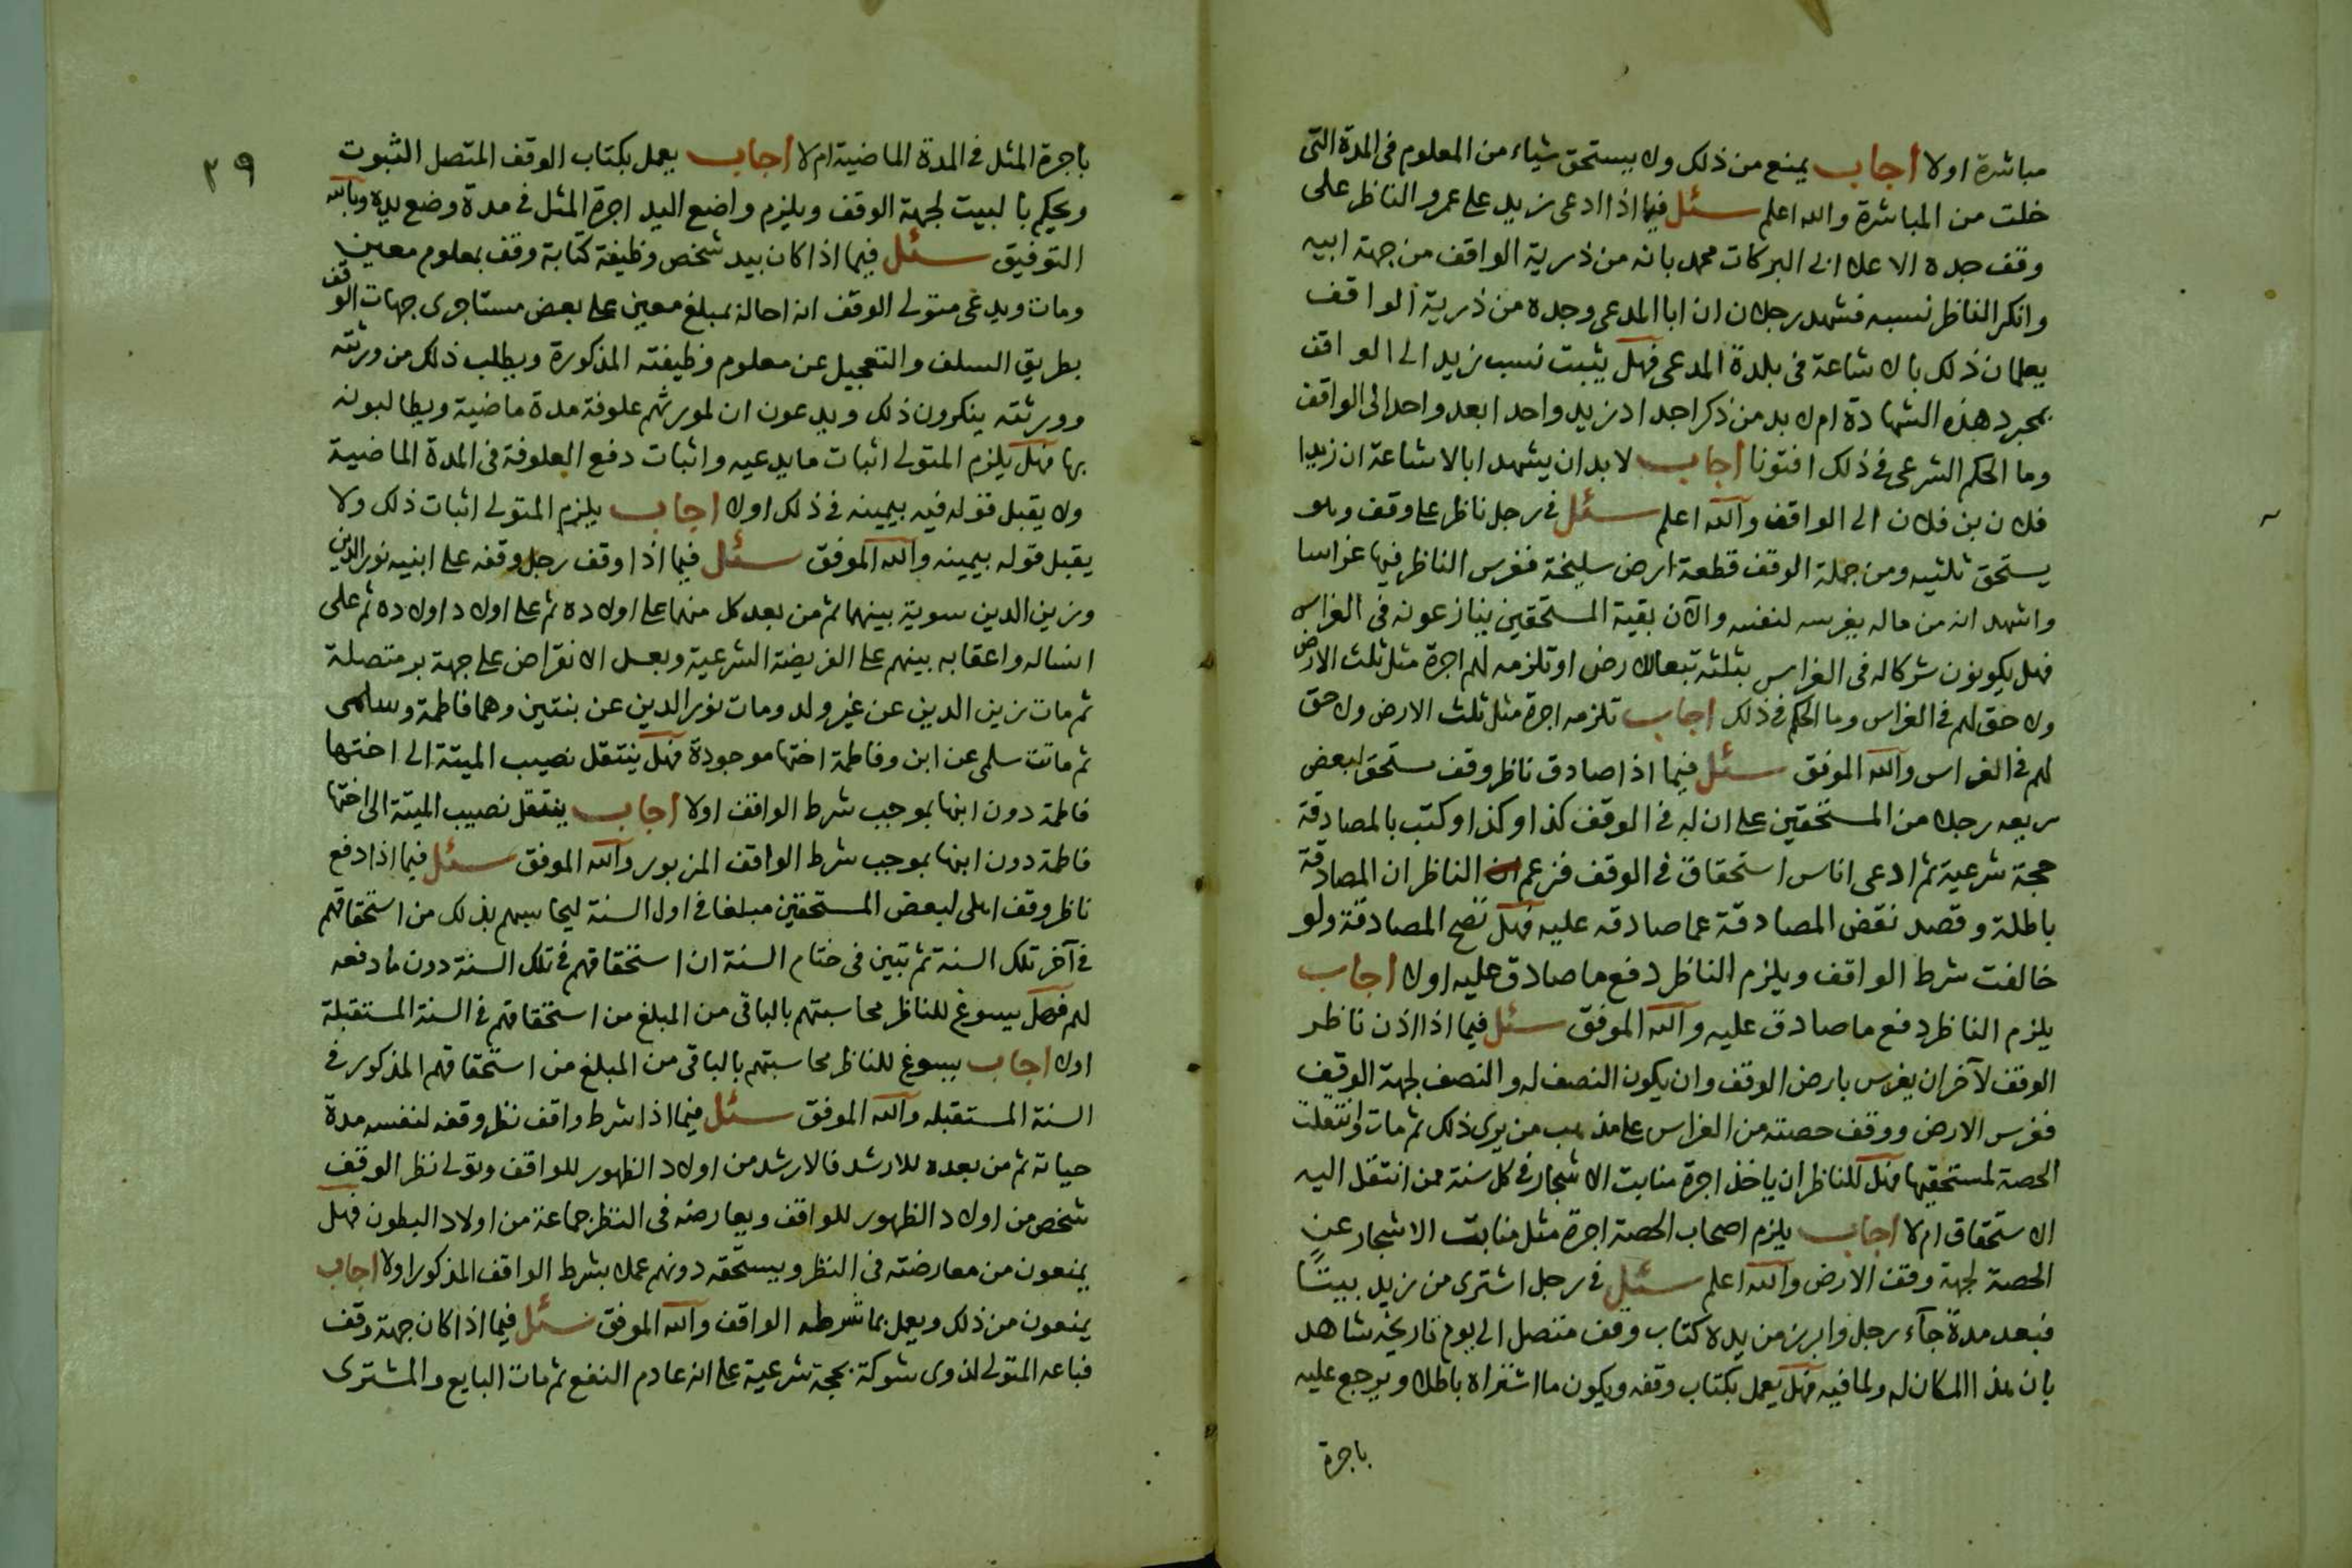 مباشرة اولا اجاب يمنع من ذلك ولا يستحق شياء من المعلوم فى المدة التى
خلت من المباشرة والله اعلم سئل فيما اذا ادعى زيد على عمرو الناظر على
وقف جده الاعلا ابى البركات محمد بانه من ذرية الواقف من جهة ابيه
وانكر الناظر نسبه فشهد رجلان ان ابا المدعى وجده من ذرية الواقف
يعلمان ذلك بالاشاعة فى بلدة المدعى فهل يثبت نسب زيد الى الواقف
بمجرد هذه الشهادة ام لا بد من ذكر اجداد زيد واحدا بعد واحد الى الواقف
وما الحكم الشرعى فى ذلك افتونا اجاب لا بد ان يشهدا بالاشاعة ان زيدا
فلان بن فلان الى الواقف والله اعلم سئل فى رجل ناظر على وقف وهو
يستحق ثلثيه ومن جملة الوقف قطعة ارض سليخة فغرس الناظر فيها غراسا
واشهد انه من ماله يغرسه لنفسه والآن بقية المستحقين ينازعونه فى الغراس
فهل يكونون شركاله فى الغراس بثلثه تبعا للارض او تلزمه لهم اجرة مثل ثلث الارض
ولا حق لهم فى الغراس وما الحكم فى ذلك اجاب تلزمه اجرة مثل ثلث الارض ولا حق
لهم فى الغراس والله الموفق سئل فيما اذا صادق ناظر وقف مستحق لبعض
ريعه رجلا من المستحقين على ان له فى الوقف كذا وكذا وكتب بالمصادقة
حجة شرعية ثم ادعى اناس استحقاق فى الوقف فزعم الناظر ان المصادقة
باطلة وقصد نقض المصادقة عما صادقه عليه فهل تصح المصادقة ولو
خالفت شرط الواقف ويلزم الناظر دفع ما صادق عليه اولا اجاب
يلزم الناظر دفع ما صادق عليه والله الموفق سئل فيما اذا اذن ناظر
الوقف لآخر ان يغرس بارض الوقف وان يكون النصف له والنصف لجهة الوقف
فغرس الارض ووقف حصته من الغراس على مذهب من يرى ذلك ثم مات وانتقلت
الحصة لمستحقيها فهل للناظر ان ياخذ اجرة منابت الاشجار فى كل سنة ممن انتقل اليه
الاستحقاق ام لا اجاب يلزم اصحاب الحصة اجرة مثل منابت الاشجار عن
الحصة لجهة وقف الارض والله اعلم سئل فى رجل اشترى من زيد بيتًا
فبعد مدة جآء رجل وابرز من يده كتاب وقف متصل الى يوم تاريخه شاهد
بان هذا المكان له ولمافيه فهل يعمل بكتاب وقفه ويكون ما اشتراه باطلا ويرجع عليه
باجرة
٣٩
باجرة المثل فى المدة الماضية ام لا اجاب يعمل بكتاب الوقف المتصل الثبوت
ويحكم بالبيت لجهة الوقف ويلزم واضع اليد اجرة المثل فى مدة وضع يده وبالله
التوفيق سئل فيما اذا كان بيد شخص وظيفة كتابة وقف بمعلوم معين
ومات ويدعى متولى الوقف انه احاله بمبلغ معين على بعض مستاجرى جهات الوقف
بطريق السلف والتعجيل عن معلوم وظيفته المذكورة ويطلب ذلك من ورثته
وورثته ينكرون ذلك ويدعون ان لمورثهم علوفة مدة ماضية ويطالبونه
بها فهل يلزم المتولى اثبات ما يدعيه واثبات دفع العلوفة فى المدة الماضية
ولا يقبل قوله فيه بيمينه فى ذلك اولا اجاب يلزم المتولى اثبات ذلك ولا
يقبل قوله بيمينه والله الموفق سئل فيما اذا وقف رجل وقفه على ابنيه نور الدين
وزين الدين سوية بينهما ثم من بعد كل منهما على اولاده ثم على اولاد اولاده ثم على
انساله واعقابه بينهم على الفريضة الشرعية وبعد الانقراض على جهة بر متصلة
ثم مات زين الدين عن غير ولد ومات نور الدين عن بنتين وهما فاطمة وسلمى
ثم ماتت سلمى عن ابن وفاطمة اختها موجودة فهل ينتقل نصيب الميتة الى اختها
فاطمة دون ابنها بموجب شرط الواقف اولا اجاب ينتقل نصيب الميتة الى اختها
فاطمة دون ابنها بموجب شرط الواقف المزبور والله الموفق سئل فيما اذا دفع
ناظر وقف اهلى لبعض المستحقين مبلغا فى اول السنة ليحاسبهم بذلك من استحقاقهم
فى آخر تلك السنة ثم تبين فى ختام السنة ان استحقاقهم فى تلك السنة دون ما دفعه
لهم فهل يسوغ للناظر محاسبتهم بالباقى من المبلغ من استحقاقهم فى السنة المستقبلة
اولا اجاب يسوغ للناظر محاسبتهم بالباقى من المبلغ من استحقاقهم المذكور فى
السنة المستقبله والله الموفق سئل فيما اذا شرط واقف نظر وقفه لنفسه مدة
حياته ثم من بعده للارشد فالارشد من اولاد الظهور للواقف وتولى نظر الوقف
شخص من اولاد الظهور للواقف ويعارضه فى النظر جماعة من اولاد البطون فهل
يمنعون من معارضته فى النظر ويستحقه دونهم عملا بشرط الواقف المذكور اولا اجاب
يمنعون من ذلك ويعمل بما شرطه الواقف والله الموفق سئل فيما اذا كان جهة وقف
فباعه المتولى لذوى شوكة بحجة شرعية على انه عادم النفع ثم مات البايع والمشترى